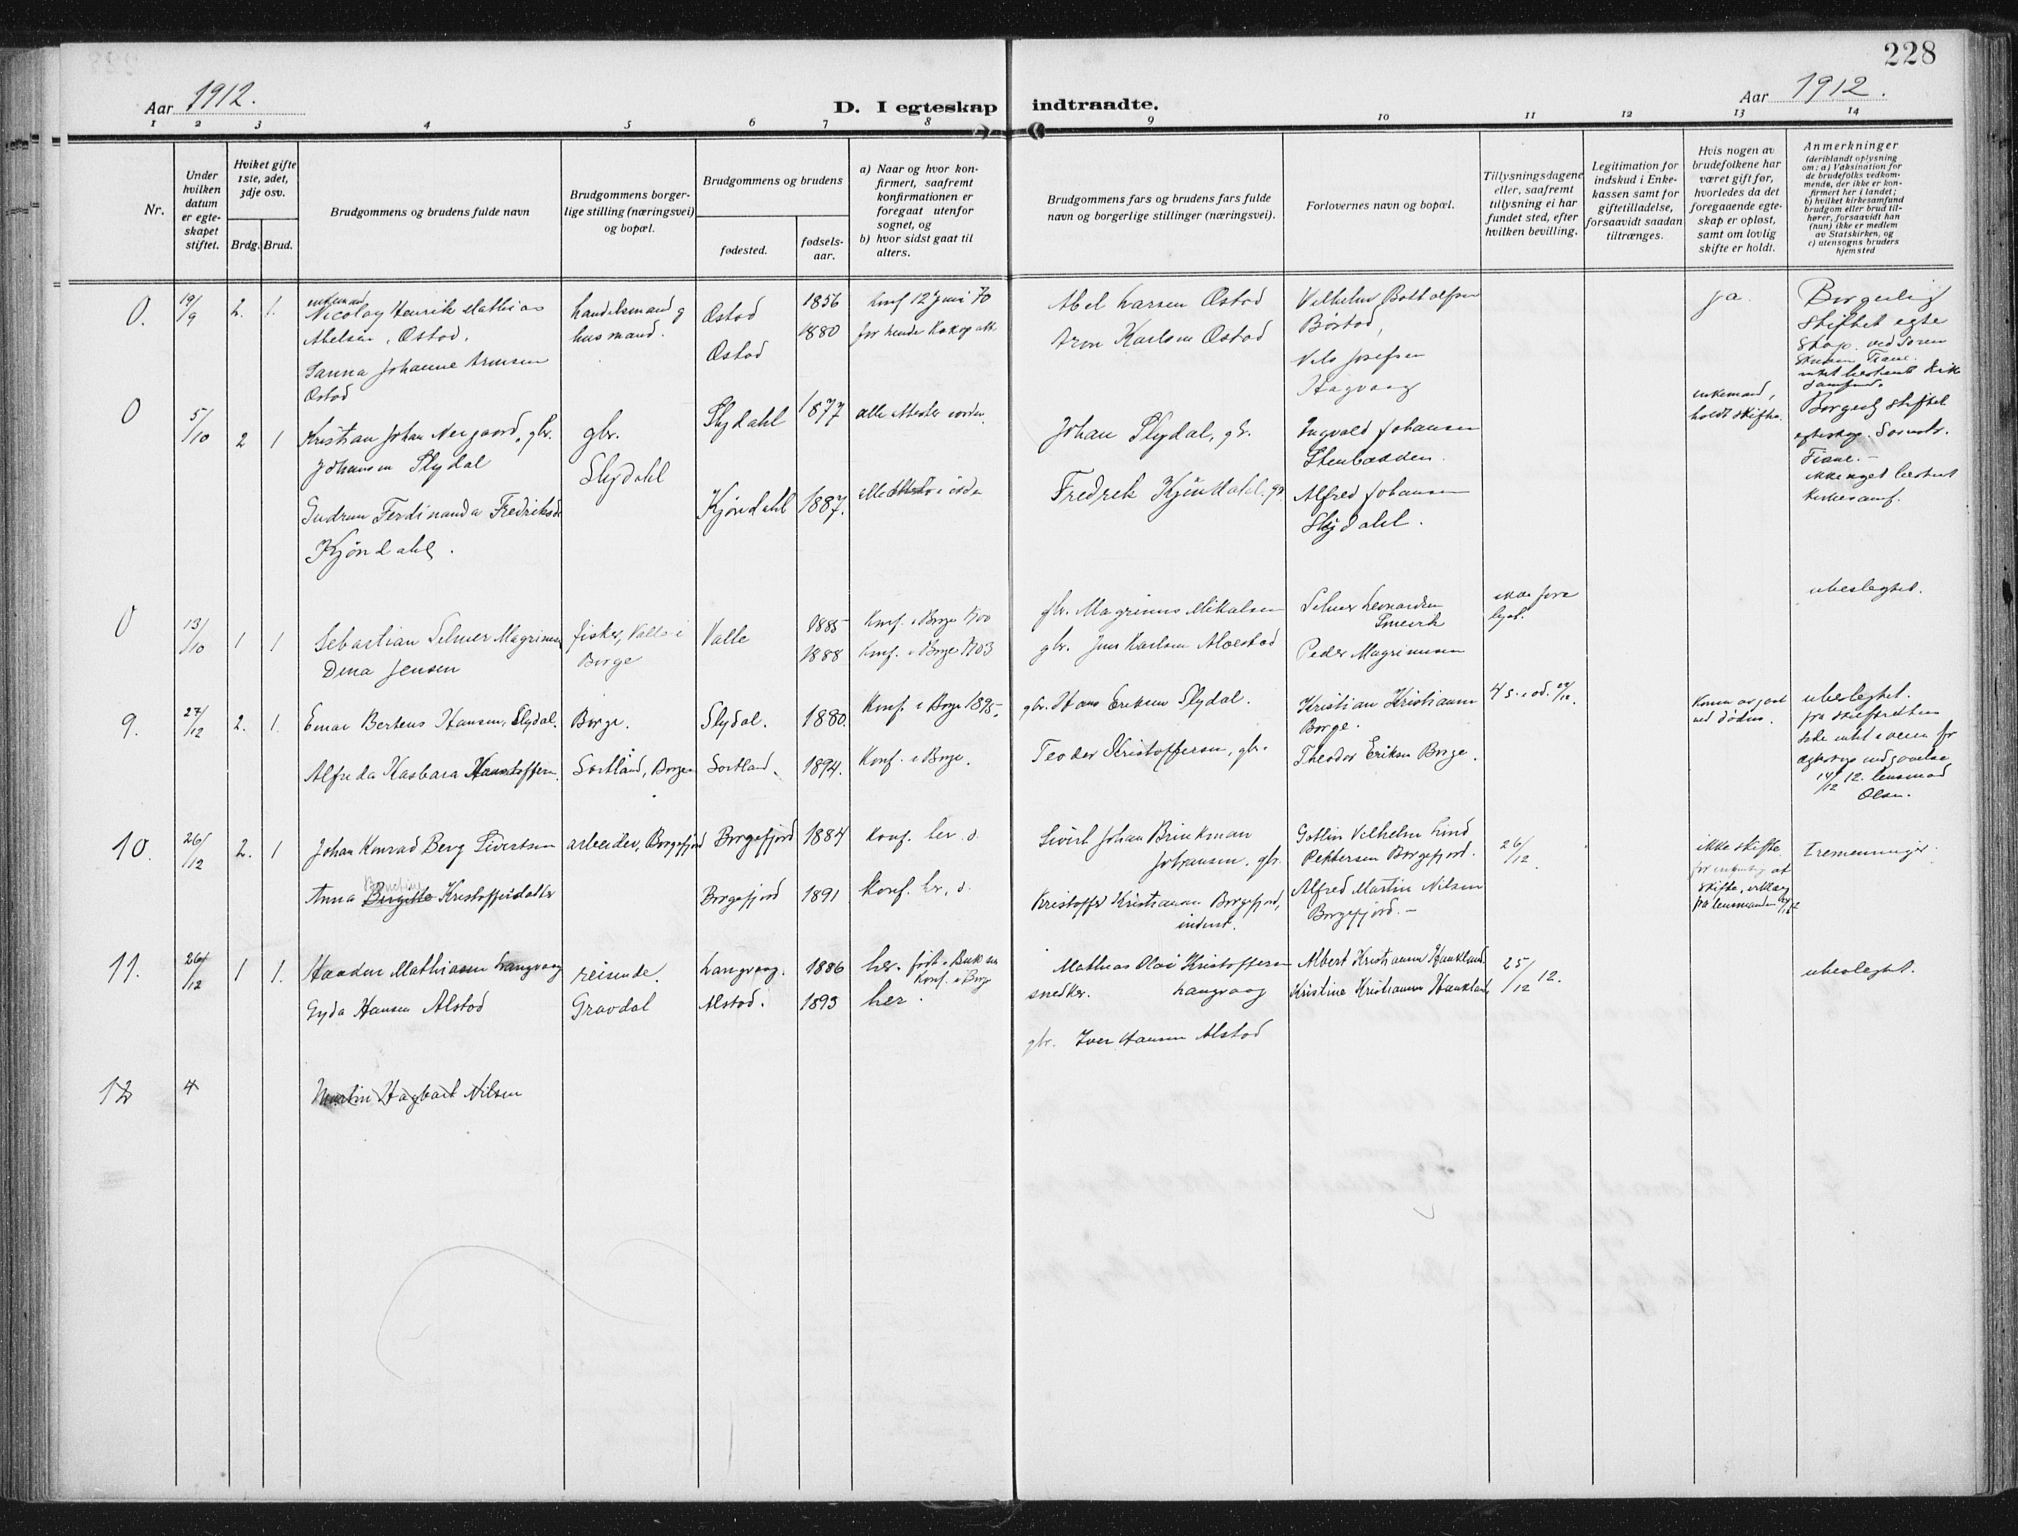 228
Aar 1912.
D. I egteskap indtraadte.
Aar 1912.
1 2 3 4 5 6 7 8 9 10 11 12 13 14
Nr.
Under hvilken datum er egteskapet stiftet.
Hviket gifte 1ste, 2det, 3dje osv.
Brdg. Brud.
Brudgommens og brudens fulde navn
Brudgommens borgerlige stilling (næringsvei) og bopæl.
Brudgommens og brudens
fødested.
fødselsaar.
a) Naar og hvor konfirmert, saafremt konfirmationen er foregaat utenfor sognet, og
b) hvor sidst gaat til alters.
Brudgommens fars og brudens fars fulde navn og borgerlige stillinger (næringsvei).
Forlovernes navn og bopæl.
Tillysningsdagene eller, saafremt tillysning ei har fundet sted, efter hvilken bevilling.
Legitimation for indskud i Enkekassen samt for giftetilladelse, forsaavidt saadan tiltrænges.
Hvis nogen av brudefolkene har været gift før, hvorledes da det foregaaende egteskap er opløst, samt om lovlig skifte er holdt.
Anmerkninger
(deriblandt oplysning om: a) Vaksination for de brudefolks vedkommende, der ikke er konfirmert her i landet;
b) hvilket kirkesamfund brudgom eller brud tilhører, forsaavidt han (hun) ikke er medlem av Statskirken, og
c) utensogns bruders hjemsted
0. 19/9 2. 1. enkemand Nicolay Henrik Mathias
Abelsen, Østad.
Sanna Johanne Arnsen
Østad
handelsmand og
husmand.
Østad
Østad
1856
1880
Konf 12 Juni 70
Abel Larsen Østad
Aron Karlsen Østad
Vilhelm Bottolfsen
Børstad,
Nils Josefsen
Hagvaag
ja.
Borgerlig
stiftet egte
skap. ved Soren
0 5/10 2 1 Kristian Johan Nergaard, gbr.
Johansen Slydal
Gudrun Ferdinanda Fredriksd
Kjøndahl.
gbr.
Slydahl
Slydahl
Kjøndahl
1877
1887.
alle attester i orden
alle attester i orden
Johan Slydal, gbr.
Fredrek Kjøndahl. gbr
Ingvald Johansen
Stenbakken.
Alfred Johansen
Slydahl.
enkemand,
holdt skifte.
Borgerlig stiftet
egteskap. Sorenskr.
ikke noget bestemt
kirkesamf.
0 13/10 1 1 Sebastian Selmer Magnussen
Dina Jensen
fisker, Valle i
Borge
Valle
1885
1888
Konf. i Borge 1900
Konf. i Borge 1903
gbr. Magnus Mikalsen
gbr. Jens Karlsen Alvestad
Selmer Leonardsen
Peder Magnussen
ubeslegtet.
9. 27/12 2. 1. Einar Berteus Hansen, Slydal.
Alfreda Kasbara Kristoffersen.
Borge.
Sortland, Borge
Slydal.
Sortland.
1880.
1894.
Konf. i Borge 1895.
Konf. i Borge.
gbr. Hans Eriksen Slydal.
Teodor Kristoffersen, gbr.
Kristian Kristiansen
Borge.
Theodor Eriksen Borge.
Konen avgaat
ved døden.
ubeslegtet.
fra skifteretten
14/12 12. lensmand
Olsen.
10. 26/12 2. 1 Johan Konrad Berg Sivertsen
Anna Birgitte Kristoffersdatter
arbeider, Borgefjord
Borgefjord
Borgefjord
1884
1891
Konf. her. o.
Konf. her, o.
Sivert Johan Brinkman
Johansen, gbr.
Kristoffer Kristiansen Borgefjord,
inderst.
Gotlin Vilhelm Lind
Pettersen Borgefjord.
Alfred Martin Nilsen
Borgefjord.-
26/12
ikke skifte
skifte, erklæring
fra lensmanden
tremenninger.
11. 26/12 1 1. Haakon Mathiasen Langvaag
Gyda Hansen Alstad
reisende.
Gravdal
Langvaag.
Alstad.
1886
1893
her. født i Buksnes
Konf. i Borge
her.
Mathias Olai Kristoffersen
snedker. Langvaag
gbr. Iver Hansen Alstad
Albert Kristiansen Haukland
Kristine Kristiansen Haukland
25/12 12.
ubeslegtet.
12 4 Martin Hagbart Nilsen